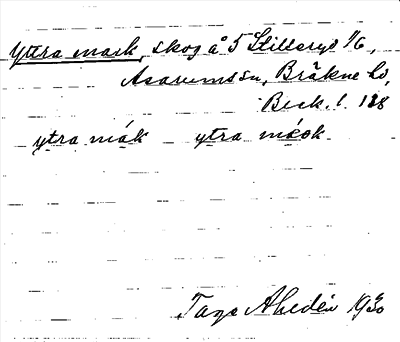 Yttra mark, skog å 5 Stilleryd 1/6,
Asarums sn, Bräkne hd,
Bleck. l. 188
ytra mák ytra mácok
Tage Ahldén 1930